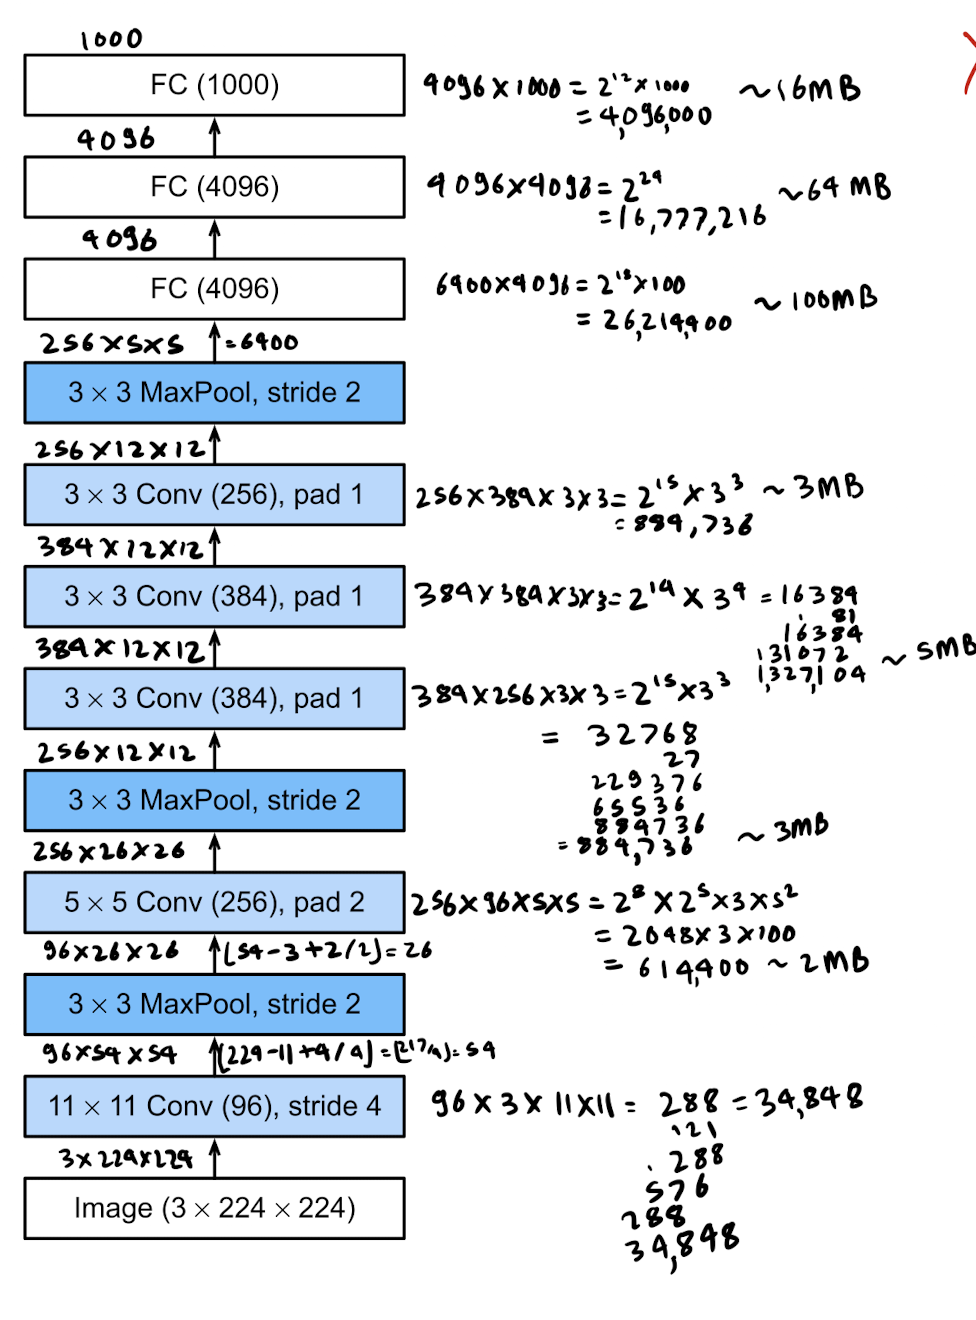 1000
FC (1000)
4096 × 1000 = 2¹² × 1000 ~16MB
= 4,096,000
4096
FC (4096)
4096×4096 = 2²⁴ ~64 MB
= 16,777,216
4096
FC (4096)
6400×4096 = 2¹⁸×100
= 26,214,400 ~ 100MB
256×5×5 = 6400
3 × 3 MaxPool, stride 2
256×12×12
3 × 3 Conv (256), pad 1
256×384×3×3 = 2¹⁵×3³ ~ 3MB
= 884,736
384×12×12
3 × 3 Conv (384), pad 1
384×384×3×3 = 2¹⁴ × 3⁴ = 16384
81
16384
131072
1,327,104 ~ 5MB
384×12×12
3 × 3 Conv (384), pad 1
384×256×3×3 = 2¹⁵×3³
= 32768
27
229376
65536
884736
= 884,736 ~ 3MB
256×12×12
3 × 3 MaxPool, stride 2
256×26×26
5 × 5 Conv (256), pad 2
256×96×5×5 = 2⁸ × 2⁵×3×5²
= 2048×3×100
= 614,400 ~ 2MB
96×26×26 ⌊54-3+2/2⌋ = 26
3 × 3 MaxPool, stride 2
96×54×54 ⌊224-11+4/4⌋ = ⌊217/4⌋ = 54
11 × 11 Conv (96), stride 4
96 × 3 × 11×11 = 288 = 34,848
121
288
576
288
34,848
3×224×224
Image (3 × 224 × 224)